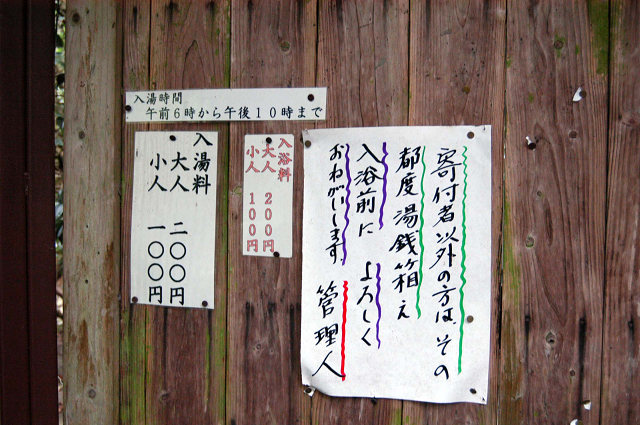 入湯時間
午前6時から午後10時まで
入湯料
大人 二〇〇円
小人 一〇〇円
入浴料
大人 200円
小人 100円
寄付者以外の方は、その
都度湯銭箱え
入浴前に よろしく
おねがいします。
管理人